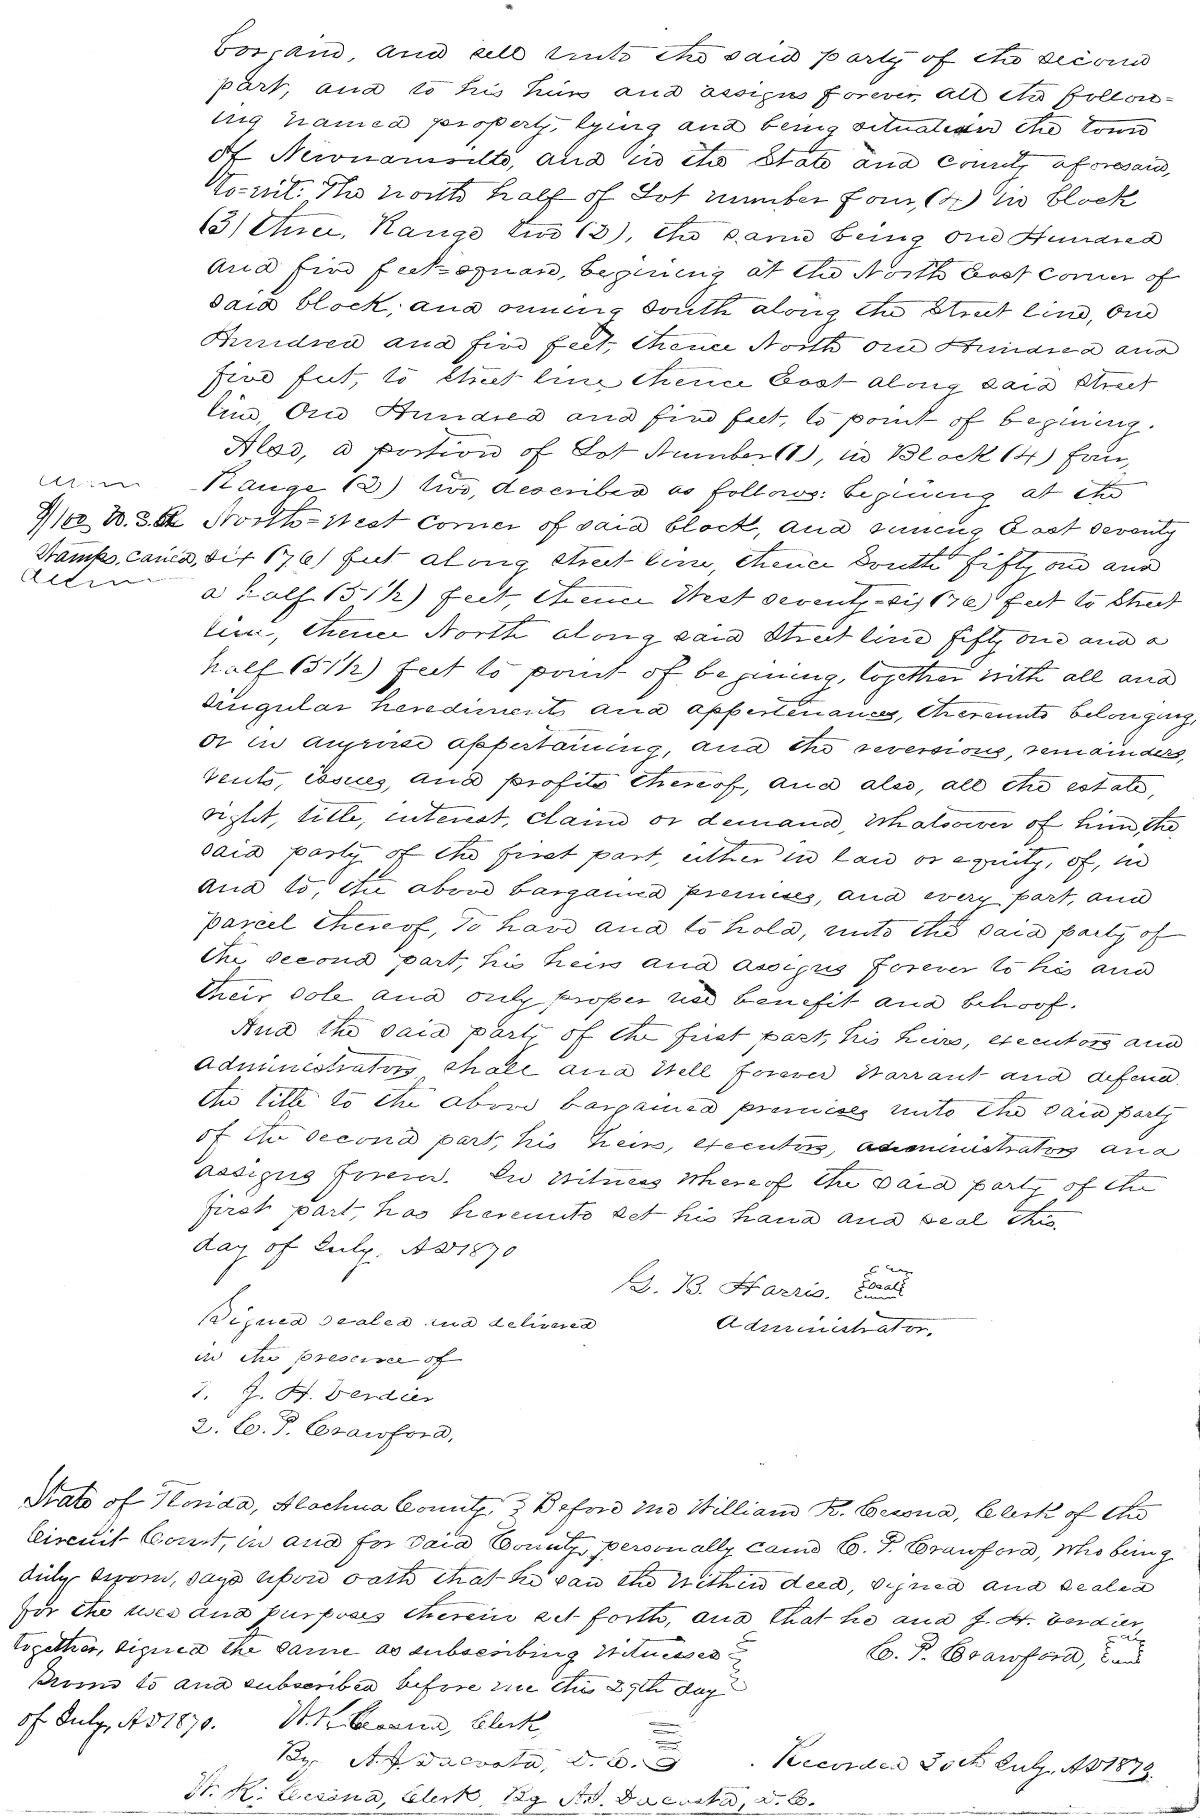 bargain, and sell unto the said party of the second
part, and to his heirs and assigns forever, all the follow=
ing named property, lying and being situate in the town
of Newnansville, and in the State and county aforesaid,
to=wit: The north half of Lot number four, (4) in block
(3) three, Range two (2), the same being one Hundred
and five feet=square, begining at the North East corner of
said block, and runing South along the Street line, One
Hundred and five feet, thence North one Hundred and
five feet, to Street line, thence East along said Street
line, One Hundred and five feet, to point of begining.
Also, a portion of Lot Number (1), in Block (4) four,
Range (2) two, described as follows: begining at the
North=West corner of said block, and runing East seventy
Stamps, canced,
six (76) feet along street line, thence South fifty one and
a half (51½) feet, thence West seventy=six (76) feet to Street
line, thence North along said Street line fifty one and a
half (51½) feet to point of begining, together with all and
singular herediments and appertenances, thereunto belonging,
or in anywise appertaining, and the reversions, remainders,
rents, issues, and profits thereof, and also, all the estate,
right, title, interest, claim or demand, whatsoever of him, the
said party of the first part, either in law or equity, of, in
and to, the above bargained premises, and every part, and
parcel thereof, To have and to hold, unto the said party of
the second part, his heirs and assigns forever to his and
their sole and only proper use benefit and behoof.
And the said party of the first part, his heirs, executors and
administrators, shall and Well forever Warrant and defend
the title to the above bargained premises unto the said party
of the second part, his heirs, executors, administrators and
assigns forever. In Witness Whereof the said party of the
first part, has hereunto set his hand and seal this
day of July, AD 1870
G. B. Harris. Seal
Administrator.
Signed sealed and delivered
in the presence of
1. J. H. Verdier
2. C. P. Crawford,
State of Florida, Alachua County, } Before me William K. Cessna, Clerk of the
Circuit Court, in and for said County, personally came C. P. Crawford, Who being
duly sworn, says upon oath that he saw the within deed, signed and sealed
for the uses and purposes therein set forth, and that he and J. H. Verdier,
together, signed the same as subscribing Witnesses
C. P. Crawford, Seal
Sworn to and subscribed before me this 29th day
of July, AD 1870. W. K. Cessna, Clerk,
By A. J. Dacosta, D. C.
Recorded 30th July, AD 1870.
W. K. Cessna, Clerk, By A. J. Dacosta, D. C.